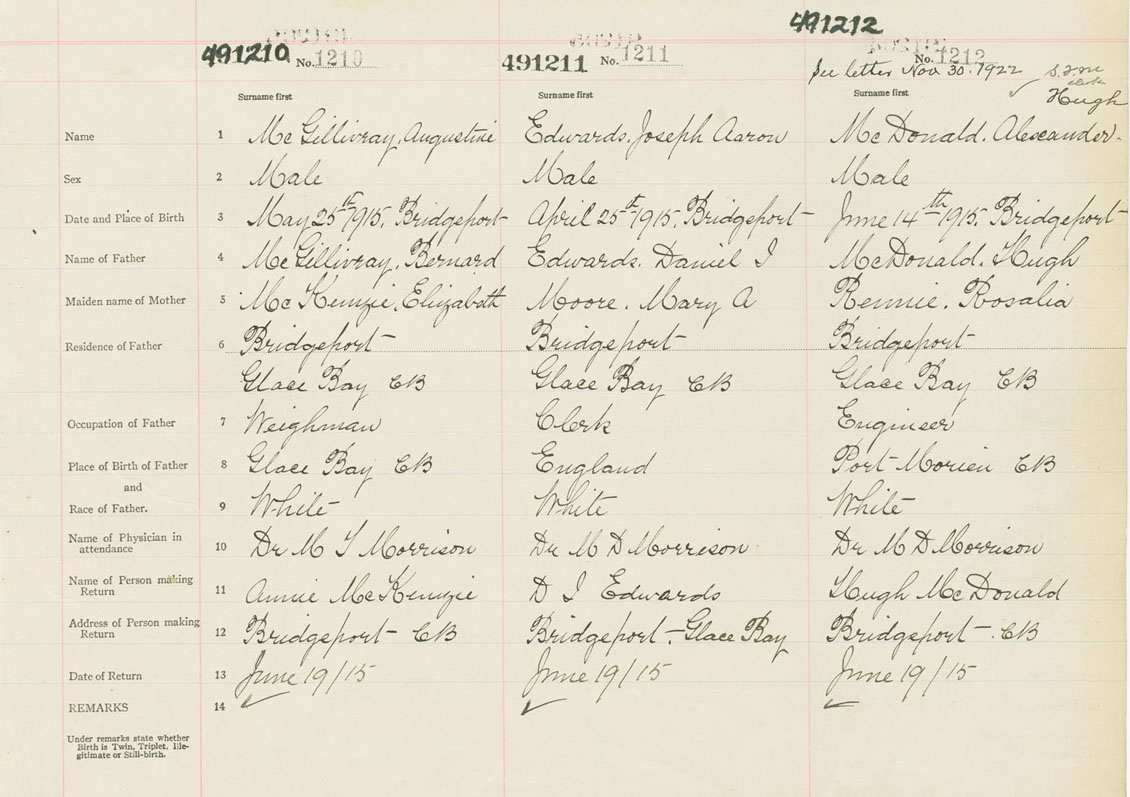 491210 No. 1210 491211 No. 1211 491212 No. 1212
See letter Nov 30. 1922
Hugh
Surname first Surname first Surname first
Name 1 McGillivray, Augustine Edwards, Joseph Aaron McDonald. Alexander
Sex 2 Male Male Male
Date and Place of Birth 3 May 25th 1915, Bridgeport April 25th 1915, Bridgeport June 14th 1915, Bridgeport
Name of Father 4 McGillivray, Bernard Edwards, Daniel J McDonald. Hugh
Maiden name of Mother 5 McKenzie, Elizabeth Moore, Mary A Rennie, Rosalia
Residence of Father 6 Bridgeport Bridgeport Bridgeport
Glace Bay CB Glace Bay CB Glace Bay CB
Occupation of Father 7 Weighman Clerk Engineer
Place of Birth of Father 8 Glace Bay CB England Port Morien CB
and
Race of Father. 9 White White White
Name of Physician in
attendance 10 Dr M T Morrison Dr M D Morrison Dr M D Morrison
Name of Person making
Return 11 Annie McKenzie D J Edwards Hugh McDonald
Address of Person making
Return 12 Bridgeport CB Bridgeport Glace Bay Bridgeport CB
Date of Return 13 June 19/15 June 19/15 June 19/15
REMARKS 14
Under remarks state whether
Birth is Twin, Triplet, Ille-
gitimate or Still-birth.